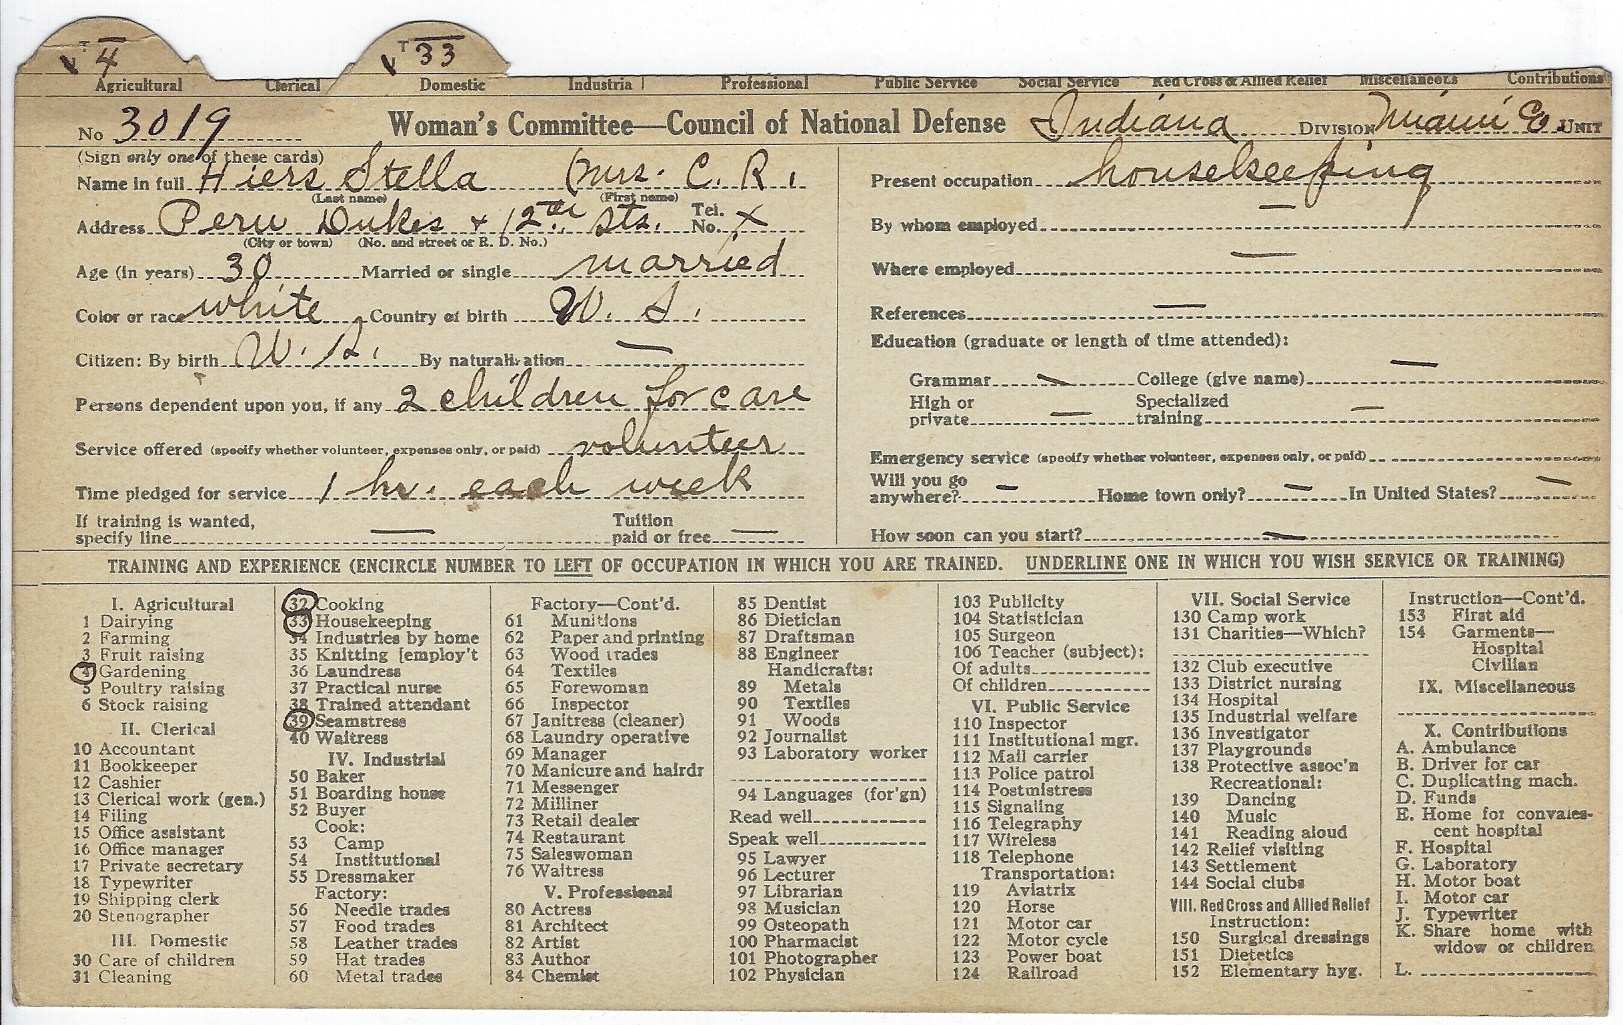 T 4 T 33
Agricultural Clerical Domestic Industrial Professional Public Service Social Service Red Cross & Allied Relief Miscellaneous Contributions
No 3019 Woman's Committee—Council of National Defense Indiana DIVISION Miami Co. UNIT
(Sign only one of these cards)
Name in full Hiers Stella (Mrs. C. R.
(Last name) (First name)
Address Peru Dukes + 12th Sts. Tel. No. X
(City or town) (No. and street or R. D. No.)
Age (in years) 30 Married or single married
Color or race white Country of birth U. S.
Citizen: By birth By naturalization —
Persons dependent upon you, if any 2 children for care
Service offered (specify whether volunteer, expenses only, or paid) volunteer
Time pledged for service 1 hr. each week
If training is wanted, specify line — Tuition paid or free —
Present occupation housekeeping
By whom employed —
Where employed —
References —
Education (graduate or length of time attended):
Grammar — College (give name) —
High or private — Specialized training —
Emergency service (specify whether volunteer, expenses only, or paid)
Will you go anywhere? — Home town only? — In United States? —
How soon can you start? —
TRAINING AND EXPERIENCE (ENCIRCLE NUMBER TO LEFT OF OCCUPATION IN WHICH YOU ARE TRAINED. UNDERLINE ONE IN WHICH YOU WISH SERVICE OR TRAINING)
I. Agricultural
1 Dairying
2 Farming
3 Fruit raising
4 Gardening
5 Poultry raising
6 Stock raising
II. Clerical
10 Accountant
11 Bookkeeper
12 Cashier
13 Clerical work (gen.)
14 Filing
15 Office assistant
16 Office manager
17 Private secretary
18 Typewriter
19 Shipping clerk
20 Stenographer
III. Domestic
30 Care of children
31 Cleaning
32 Cooking
33 Housekeeping
34 Industries by home
35 Knitting [employ't
36 Laundress
37 Practical nurse
38 Trained attendant
39 Seamstress
40 Waitress
IV. Industrial
50 Baker
51 Boarding house
52 Buyer
Cook:
53 Camp
54 Institutional
55 Dressmaker
Factory:
56 Needle trades
57 Food trades
58 Leather trades
59 Hat trades
60 Metal trades
Factory—Cont'd.
61 Munitions
62 Paper and printing
63 Wood trades
64 Textiles
65 Forewoman
66 Inspector
67 Janitress (cleaner)
68 Laundry operative
69 Manager
70 Manicure and hairdr
71 Messenger
72 Milliner
73 Retail dealer
74 Restaurant
75 Saleswoman
76 Waitress
V. Professional
80 Actress
81 Architect
82 Artist
83 Author
84 Chemist
85 Dentist
86 Dietician
87 Draftsman
88 Engineer
Handicrafts:
89 Metals
90 Textiles
91 Woods
92 Journalist
93 Laboratory worker
94 Languages (for'gn)
Read well
Speak well
95 Lawyer
96 Lecturer
97 Librarian
98 Musician
99 Osteopath
100 Pharmacist
101 Photographer
102 Physician
103 Publicity
104 Statistician
105 Surgeon
106 Teacher (subject):
Of adults
Of children
VI. Public Service
110 Inspector
111 Institutional mgr.
112 Mail carrier
113 Police patrol
114 Postmistress
115 Signaling
116 Telegraphy
117 Wireless
118 Telephone
Transportation:
119 Aviatrix
120 Horse
121 Motor car
122 Motor cycle
123 Power boat
124 Railroad
VII. Social Service
130 Camp work
131 Charities—Which?
132 Club executive
133 District nursing
134 Hospital
135 Industrial welfare
136 Investigator
137 Playgrounds
138 Protective assoc'n
Recreational:
139 Dancing
140 Music
141 Reading aloud
142 Relief visiting
143 Settlement
144 Social clubs
VIII. Red Cross and Allied Relief
Instruction:
150 Surgical dressings
151 Dietetics
152 Elementary hyg.
Instruction—Cont'd.
153 First aid
154 Garments—
Hospital
Civilian
IX. Miscellaneous
X. Contributions
A. Ambulance
B. Driver for car
C. Duplicating mach.
D. Funds
E. Home for convales-
cent hospital
F. Hospital
G. Laboratory
H. Motor boat
I. Motor car
J. Typewriter
K. Share home with
widow or children
L.